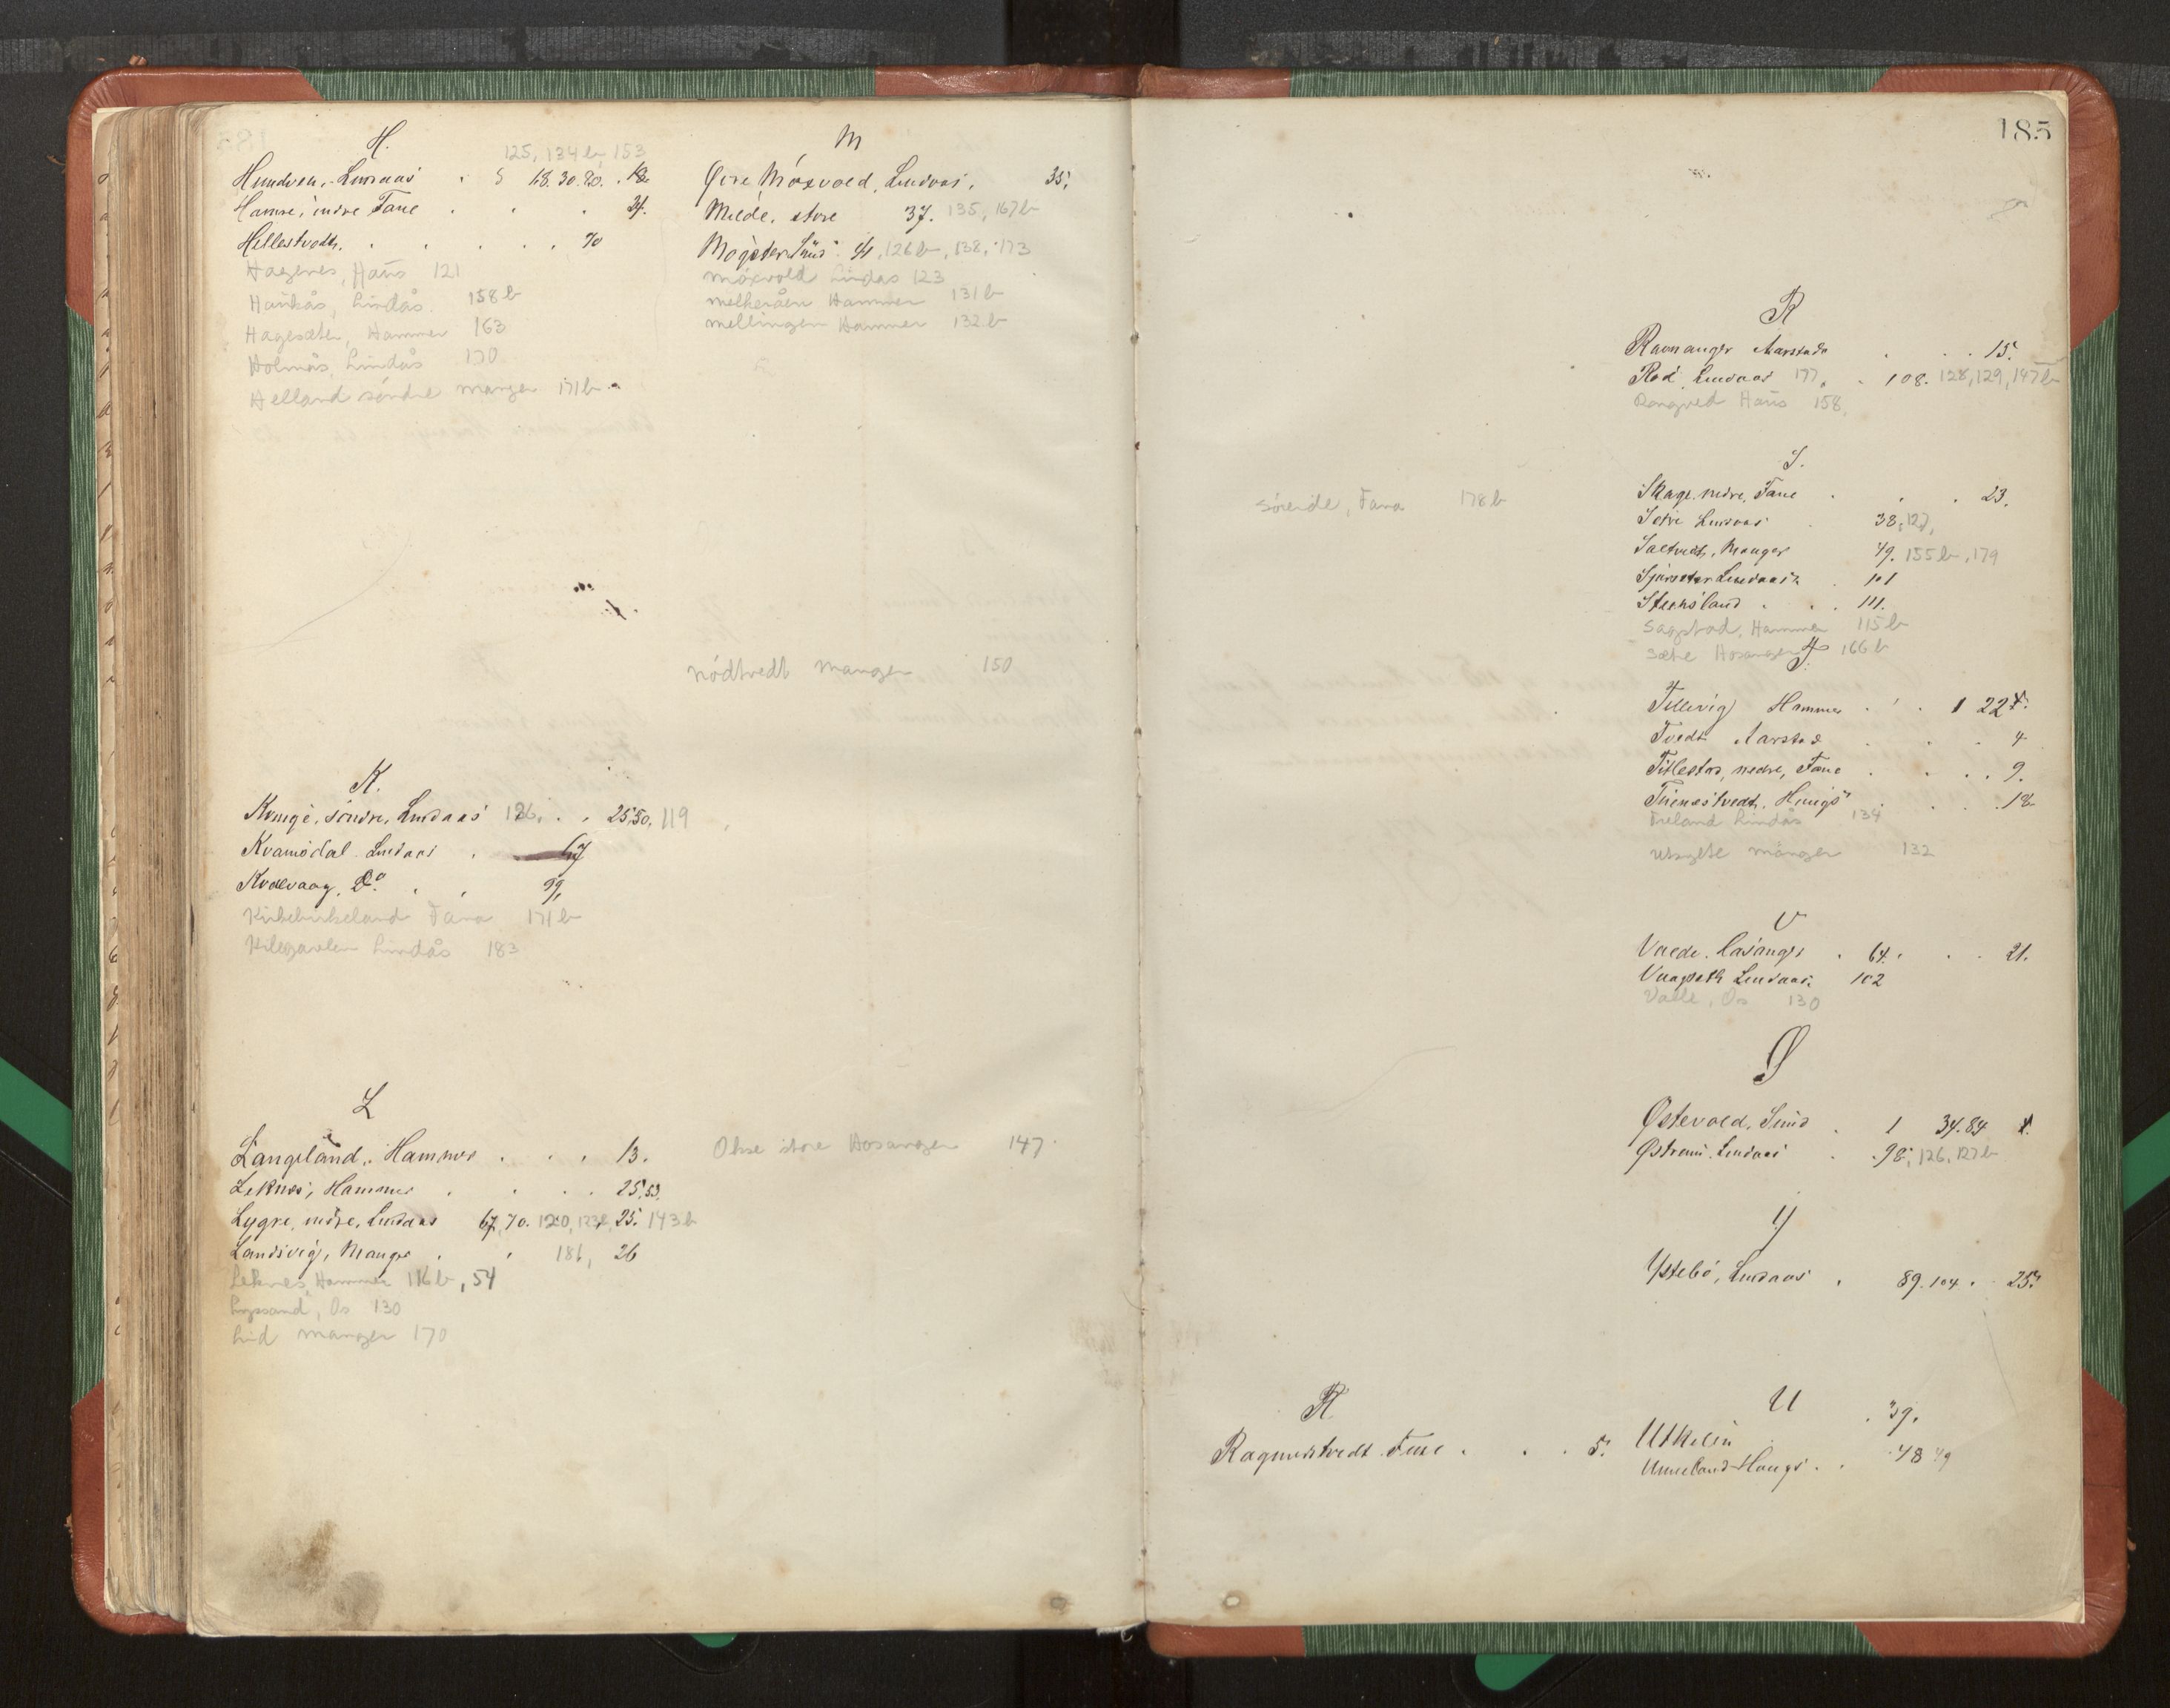 H.
125, 134b, 153
Hundven, Lindaas 5 18. 30. 80. 18.
Hamre, indre Fane 24.
Hellestvedt 70
Hagenes, Haus 121
Haukås, Lindås 158b
Hagesæter, Hammer 163
Holmås, Lindås 170
Helland söndre Manger 171b
K.
Kvinge, söndre, Lindaas 126, 25, 50, 119
Kvamsdal Lindaas 67
Kvalvaag, Do 99,
Kirkebirkeland Fana 171b
Kilegavlen Lindås 183
L
Langeland, Hammer 13.
Leknes, Hammer 25, 53,
Lygre, nedre, Lindaas 67, 70. 120, 123b, 25, 143b
Landsvig, Manger 181, 26
Leknes, Hammer 116b, 54
Lyssand, Os 130
Lid Manger 170
M
Øvre Moxvold, Lindaas, 35,
Milde, store 37. 135, 167b
Mögster Sund 41, 126b, 138, 173
Möxvold Lindås 123
Melkeråen Hammer 131b
Mellingen Hammer 132b
Nödtvedt Manger 150
Okse store Hosanger 147
185
R
Ravnanger Aarstad 15.
Rød, Lindaas 177, 108. 128, 129, 147b
Rongved Haus 158,
S.
Söreide, Fana 178b
Skage, nedre, Fane 23.
Setre Lindaas 38, 127,
Saltvedt, Manger 49. 155b, 179
Sjurseter Lindaas 101
Steensland 111.
Sagstad, Hammer 115b
Sætre Hosanger 166b
T.
Tellevig Hammer 1 22
Tvedt Aarstad 4
Titlestad, nedre, Fane 9.
Tveland Lindås 134
132
V
64. 21.
Vaagseth Lindaas. 102
Valle, Os 130
Ø
Østevold, Sund 1 34. 84
Østrem, Lindaas 98, 126, 127b
Y
Ystebö, Lindaas 89. 104. 25.
R
5.
U
39.
Utkilen
48 49